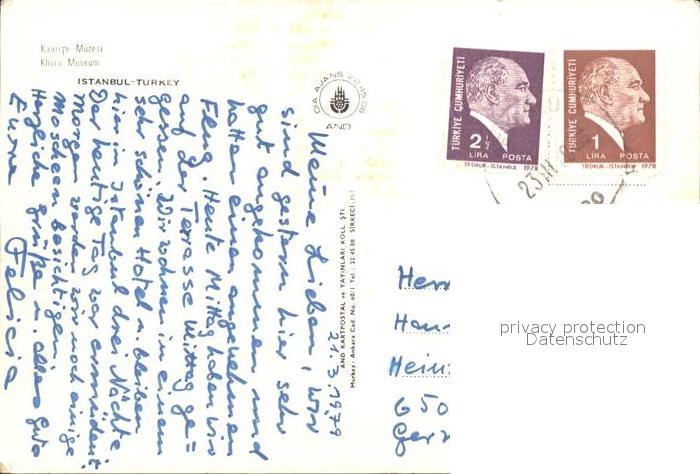 Kaariye Müzesi
Khora Museum
ISTANBUL-TURKEY
DIA AJANS 22 45 08
AND
TÜRKİYE CUMHURİYETİ
2 1/2
LİRA POSTA
1978
TÜRKİYE CUMHURİYETİ
1
LİRA POSTA
1978
23.III
AND KARTPOSTAL ve YAYINLARI KOLL. ŞTİ.
Merkez: Ankara Cad. No. 60/1 Tel.: 22 45 08 SİRKECİ-İST
21.3.1979
Meine Lieben, wir
sind gestern hier sehr
gut angekommen und
hatten einen angenehmen
Flug. Heute Mittag haben wir
auf der Terasse Mittag ge=
gessen. Wir wohnen in einem
sehr schönen Hotel u. bleiben
hier in Istanbul drei Nächte.
Der heutige Tag war ermüdend.
Morgen werden wir noch einige
Moscheen besichtigen.
Herzliche Grüße u. alles Gute
Eurer Felicia
Herr
Han
Hein
650
Ger
privacy protection
Datenschutz